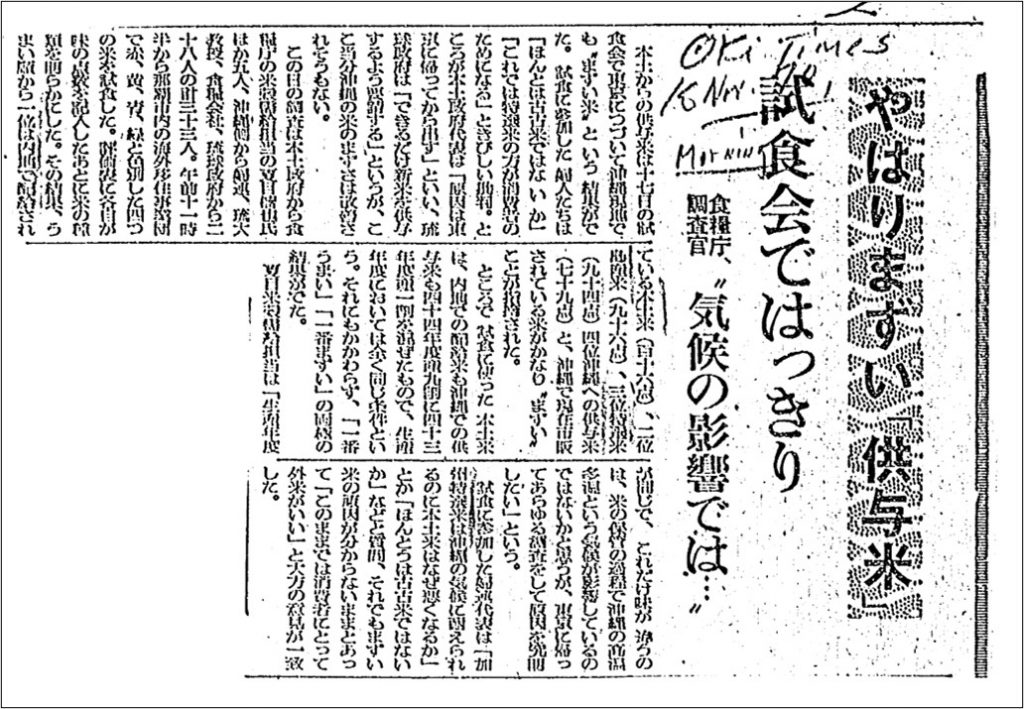 Oki Times
Morning
やはりまずい「供与米」
試食会ではっきり
食糧庁、
調査官
〝気候の影響では…〟
本土からの供与米は十七日の試
食会で東京につづいて沖縄現地で
も〝まずい米〟という結果がで
た。試食に参加した婦人たちは
「ほんとは古古米ではないか」
「これでは特選米の方が消費者の
ためになる」ときびしい批判。と
ころが本土政府代表は「原因は東
京に帰ってから出す」といい、琉
球政府は「できるだけ新米を供与
するよう要請する」というが、こ
こ当分沖縄の米のまずさは改善さ
れそうもない。
この日の調査は本土政府から食
糧庁の米穀需給担当の
ほか五人、沖縄側から婦連、琉大
教授、食糧会社、琉球政府から二
十八人の計三十三人。午前十一時
半から那覇市内の海外移住事業団
で赤、黄、青、緑と色別した四つ
の米を試食した。評価表に各自が
味の点数を記入したあとに米の種
類を明らかにした。その結果、う
まい順から一位は内地で配給され
ている本土米（百十六点）、二位
加州米（九十六点）、三位特選米
（九十四点）四位沖縄への供与米
（七十九点）と、沖縄で現在市販
されている米がかなり〝まずい〟
ことが指摘された。
ところで、試食に使った本土米
は、内地での配給米も沖縄での供
与米も四十四年度産九割に四十三
年度産一割を混ぜたもので、生産
年度においては全く同じ条件とい
う。それにもかかわらず、「一番
うまい」「一番まずい」の両極の
結果がでた。
米穀需給担当は「生産年度
が同じで、これだけ味が違うの
は、米の保存の過程で沖縄の高温
多湿という気候が影響しているの
ではないかと思うが、東京に帰っ
てあらゆる調査をして原因を究明
したい」という。
試食に参加した婦連代表は「加
州特選米は沖縄の気候に耐えられ
るのに本土米はなぜ悪くなるか」
とか「ほんとうは古古米ではない
か」などと質問、それでもまずい
米の原因が分からないままとあっ
て「このままでは消費者にとって
外米がいい」と大方の意見が一致
した。